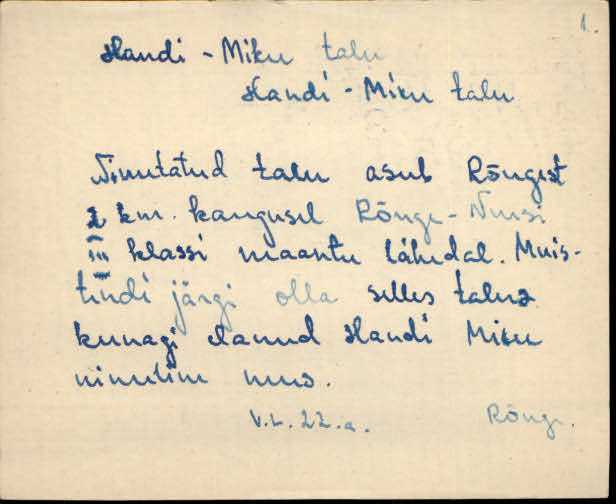 1.
Handi - Miku talu
Handi - Miku talu
Nimetatud talu asub Rõngest
km. kaugusel Rõngu - Nursi
III klassi maantee lähedal. Muis-
tendi järgi olla selles talus
kunagi elanud Handi Miku
nimeline mees.
V.L. 22.a. Rõngu.